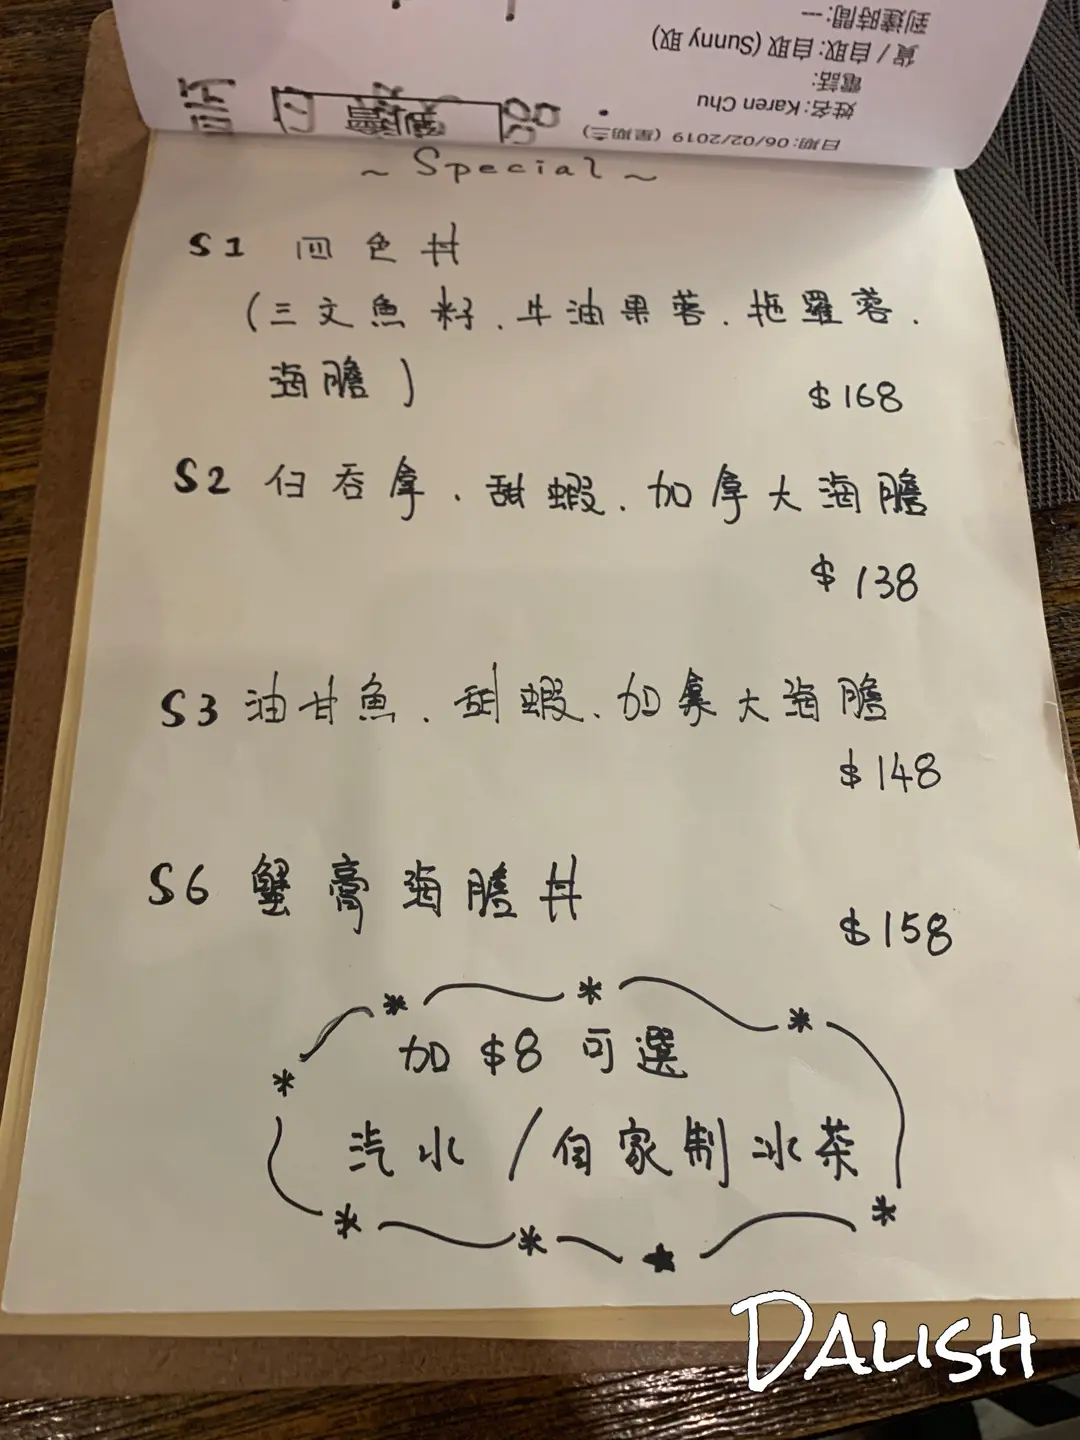 到達時間: --
貨 / 自取: 自取 (Sunny 取)
電話:
姓名: Karen Chu
日期: 06/02/2019 (星期三)
~ Special ~
S1 四色丼
(三文魚籽、牛油果蓉、拖羅蓉、
海膽)
$168
S2 白吞拿、甜蝦、加拿大海膽
$138
S3 油甘魚、甜蝦、加拿大海膽
$148
S6 蟹膏海膽丼
$158
加 $8 可選
汽水 / 自家制冰茶
DALISH